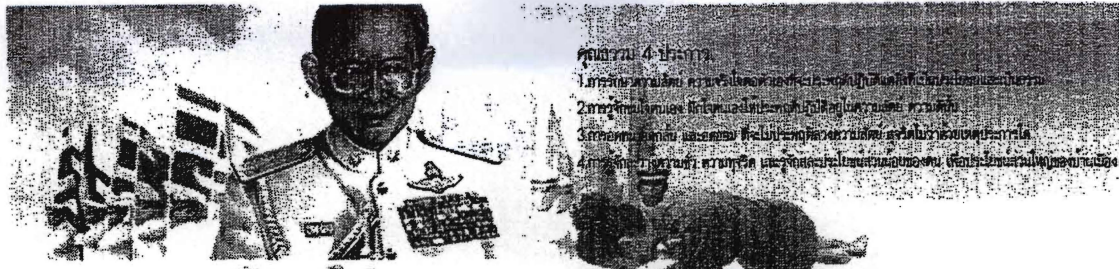 คุณธรรม 4 ประการ
1.การรักษาความสัตย์ ความจริงใจต่อตัวเองที่จะประพฤติปฏิบัติแต่สิ่งที่เป็นประโยชน์และเป็นธรรม
2.การรู้จักข่มใจตนเอง ฝึกใจตนเองให้ประพฤติปฏิบัติอยู่ในความสัตย์ ความดีนั้น
3.การอดทน อดกลั้น และอดออม ที่จะไม่ประพฤติล่วงความสัตย์ สุจริตไม่ว่าด้วยเหตุประการใด
4.การรู้จักละวางความชั่ว ความทุจริต และรู้จักสละประโยชน์ส่วนน้อยของตน เพื่อประโยชน์ส่วนใหญ่ของบ้านเมือง